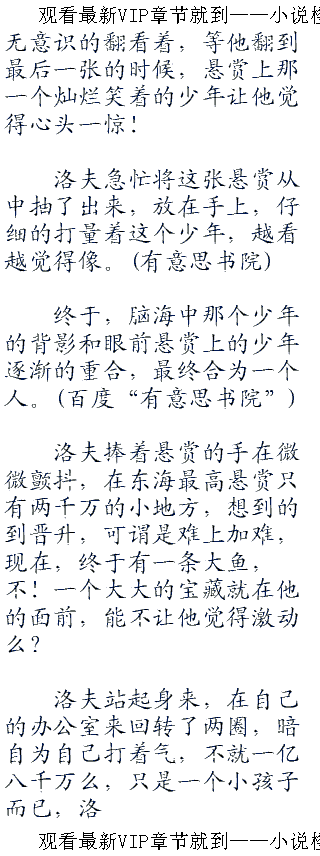 观看最新VIP章节就到——小说楼
无意识的翻看着，等他翻到
最后一张的时候，悬赏上那
一个灿烂笑着的少年让他觉
得心头一惊！
洛夫急忙将这张悬赏从
中抽了出来，放在手上，仔
细的打量着这个少年，越看
越觉得像。(有意思书院)
终于，脑海中那个少年
的背影和眼前悬赏上的少年
逐渐的重合，最终合为一个
人。(百度“有意思书院”)
洛夫捧着悬赏的手在微
微颤抖，在东海最高悬赏只
有两千万的小地方，想到的
到晋升，可谓是难上加难，
现在，终于有一条大鱼，
不！一个大大的宝藏就在他
的面前，能不让他觉得激动
么？
洛夫站起身来，在自己
的办公室来回转了两圈，暗
自为自己打着气，不就一亿
八千万么，只是一个小孩子
而已，洛
观看最新VIP章节就到——小说楼